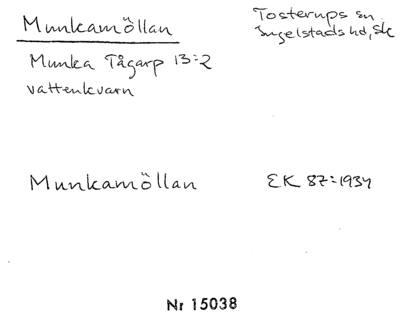 Munkamöllan
Tosterups sn
Ingelstads hd, Sk
Munka Tågarp 13:2
vattenkvarn
Munkamöllan
EK 87:1934
Nr 15038